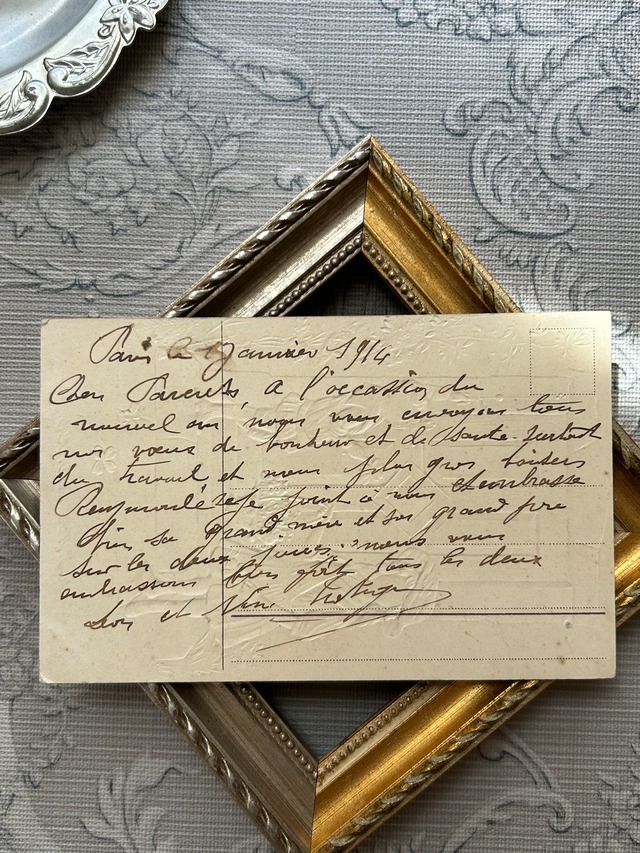 Paris le 1 Janvier 1914
Chers Parents, a l'occassion du
nouvel an, nous vous envoyons tous
nos vœux de bonheur et de santé. surtout
du travail et nous plus gros baisers
Raymonde se joint à nous et embrasse
bien sa Grand mère et son grand père
sur les deux joues. nous vous
embrassons bien fort tous les deux
et